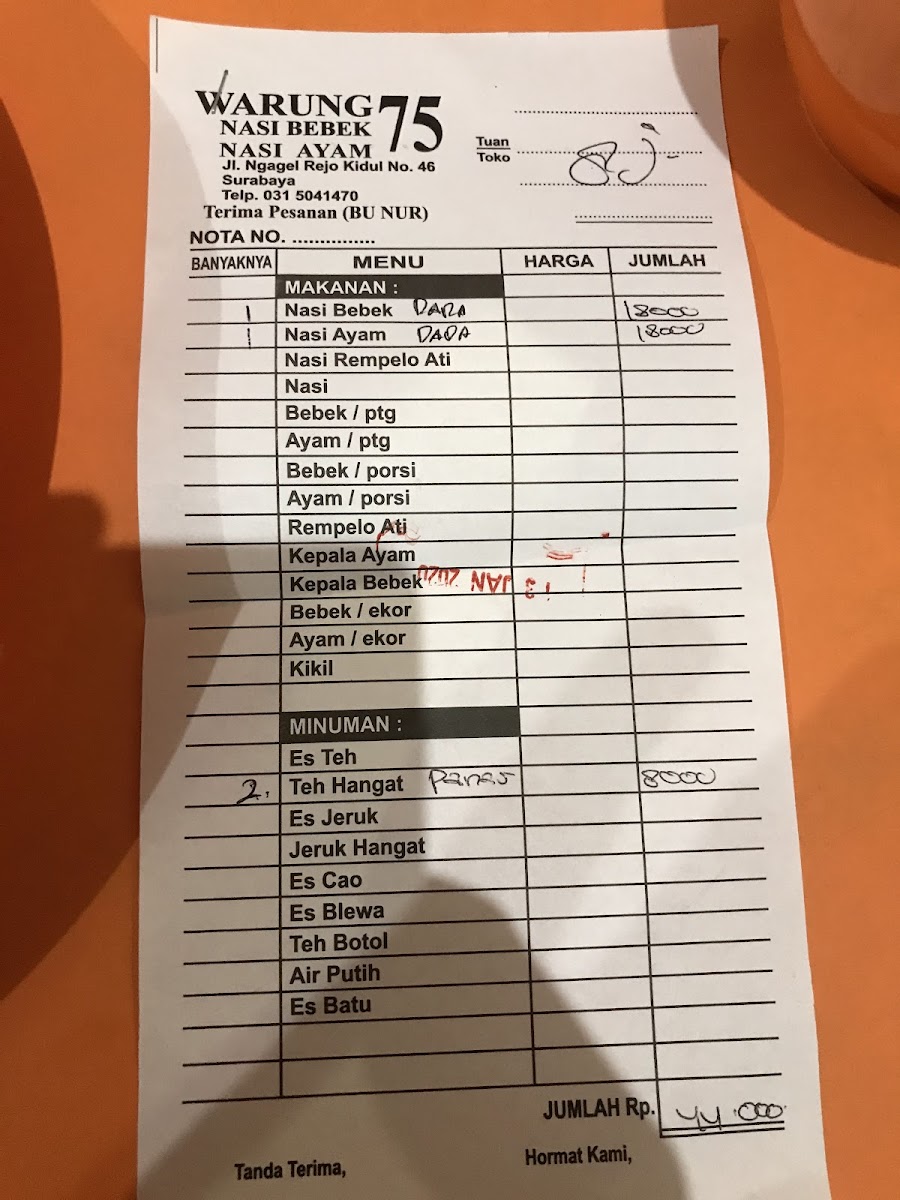 WARUNG 75
NASI BEBEK
NASI AYAM
Jl. Ngagel Rejo Kidul No. 46
Surabaya
Telp. 031 5041470
Terima Pesanan (BU NUR)
Tuan
Toko
NOTA NO. ................
BANYAKNYA MENU HARGA JUMLAH
MAKANAN :
1 Nasi Bebek DADA 18000
1 Nasi Ayam DADA 18000
Nasi Rempelo Ati
Nasi
Bebek / ptg
Ayam / ptg
Bebek / porsi
Ayam / porsi
Rempelo Ati
Kepala Ayam
Kepala Bebek
JAN 2020
Bebek / ekor
Ayam / ekor
Kikil
MINUMAN :
Es Teh
2. Teh Hangat Panas 8000
Es Jeruk
Jeruk Hangat
Es Cao
Es Blewa
Teh Botol
Air Putih
Es Batu
JUMLAH Rp. 44.000
Tanda Terima, Hormat Kami,